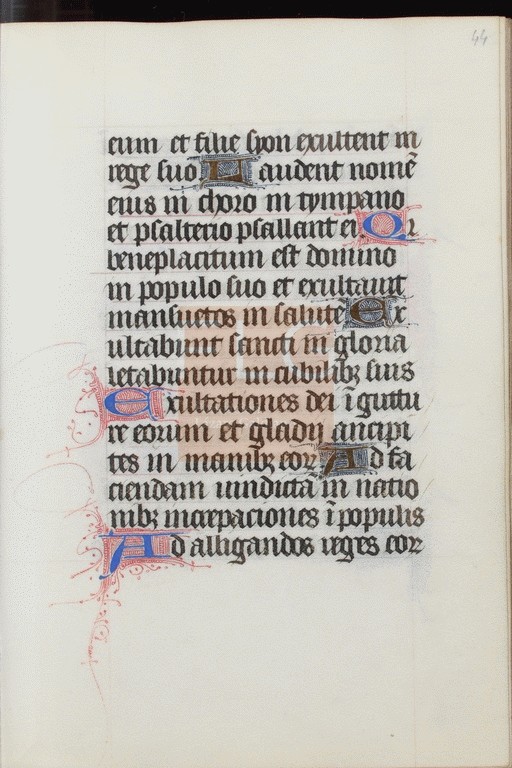 44
eum et filie syon exultent in
rege suo Laudent nomē
eius in choro in tympano
et psalterio psallant ei Qr
beneplacitum est domino
in populo suo et exultauit
mansuetos in salutē Ex
ultabunt sancti in gloria
letabuntur in cubilibꝫ suis
Exultationes dei ī guttu
re eorum et gladij ancipi
tes in manibꝫ eoꝝ Ad fa
ciendam uindictā in natio
nibꝫ increpaciones ī populis
Ad alligandos reges eoꝝ